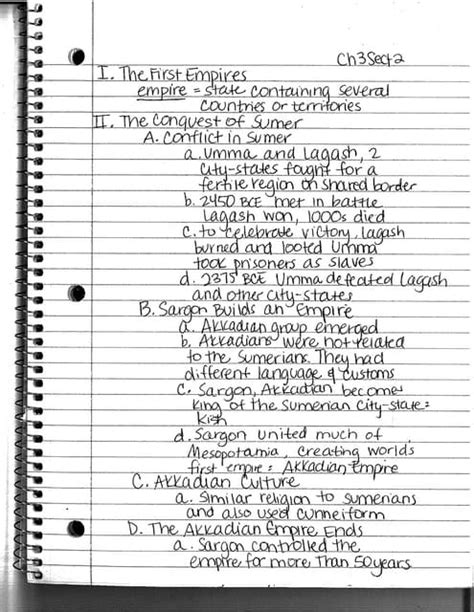 Ch3Sect2
I. The First Empires
empire = state containing several
countries or territories
II. The Conquest of Sumer
A. Conflict in Sumer
a. Umma and Lagash, 2
city-states fought for a
fertile region on shared border
b. 2450 BCE met in battle
Lagash won, 1000s died
c. to celebrate victory, lagash
burned and looted Umma
took prisoners as slaves
d. 2375 BCE Umma defeated Lagash
and other city-states
B. Sargon Builds an Empire
a. Akkadian group emerged
b. Akkadians were not related
to the Sumerians. They had
different language & customs
c. Sargon, Akkadian become
king of the Sumerian city-state:
Kish
d. Sargon united much of
Mesopotamia, creating worlds
first empire: Akkadian Empire
C. Akkadian Culture
a. Similar religion to sumerians
and also used cunneiform
D. The Akkadian Empire Ends
a. Sargon controlled the
empire for more than 50 years